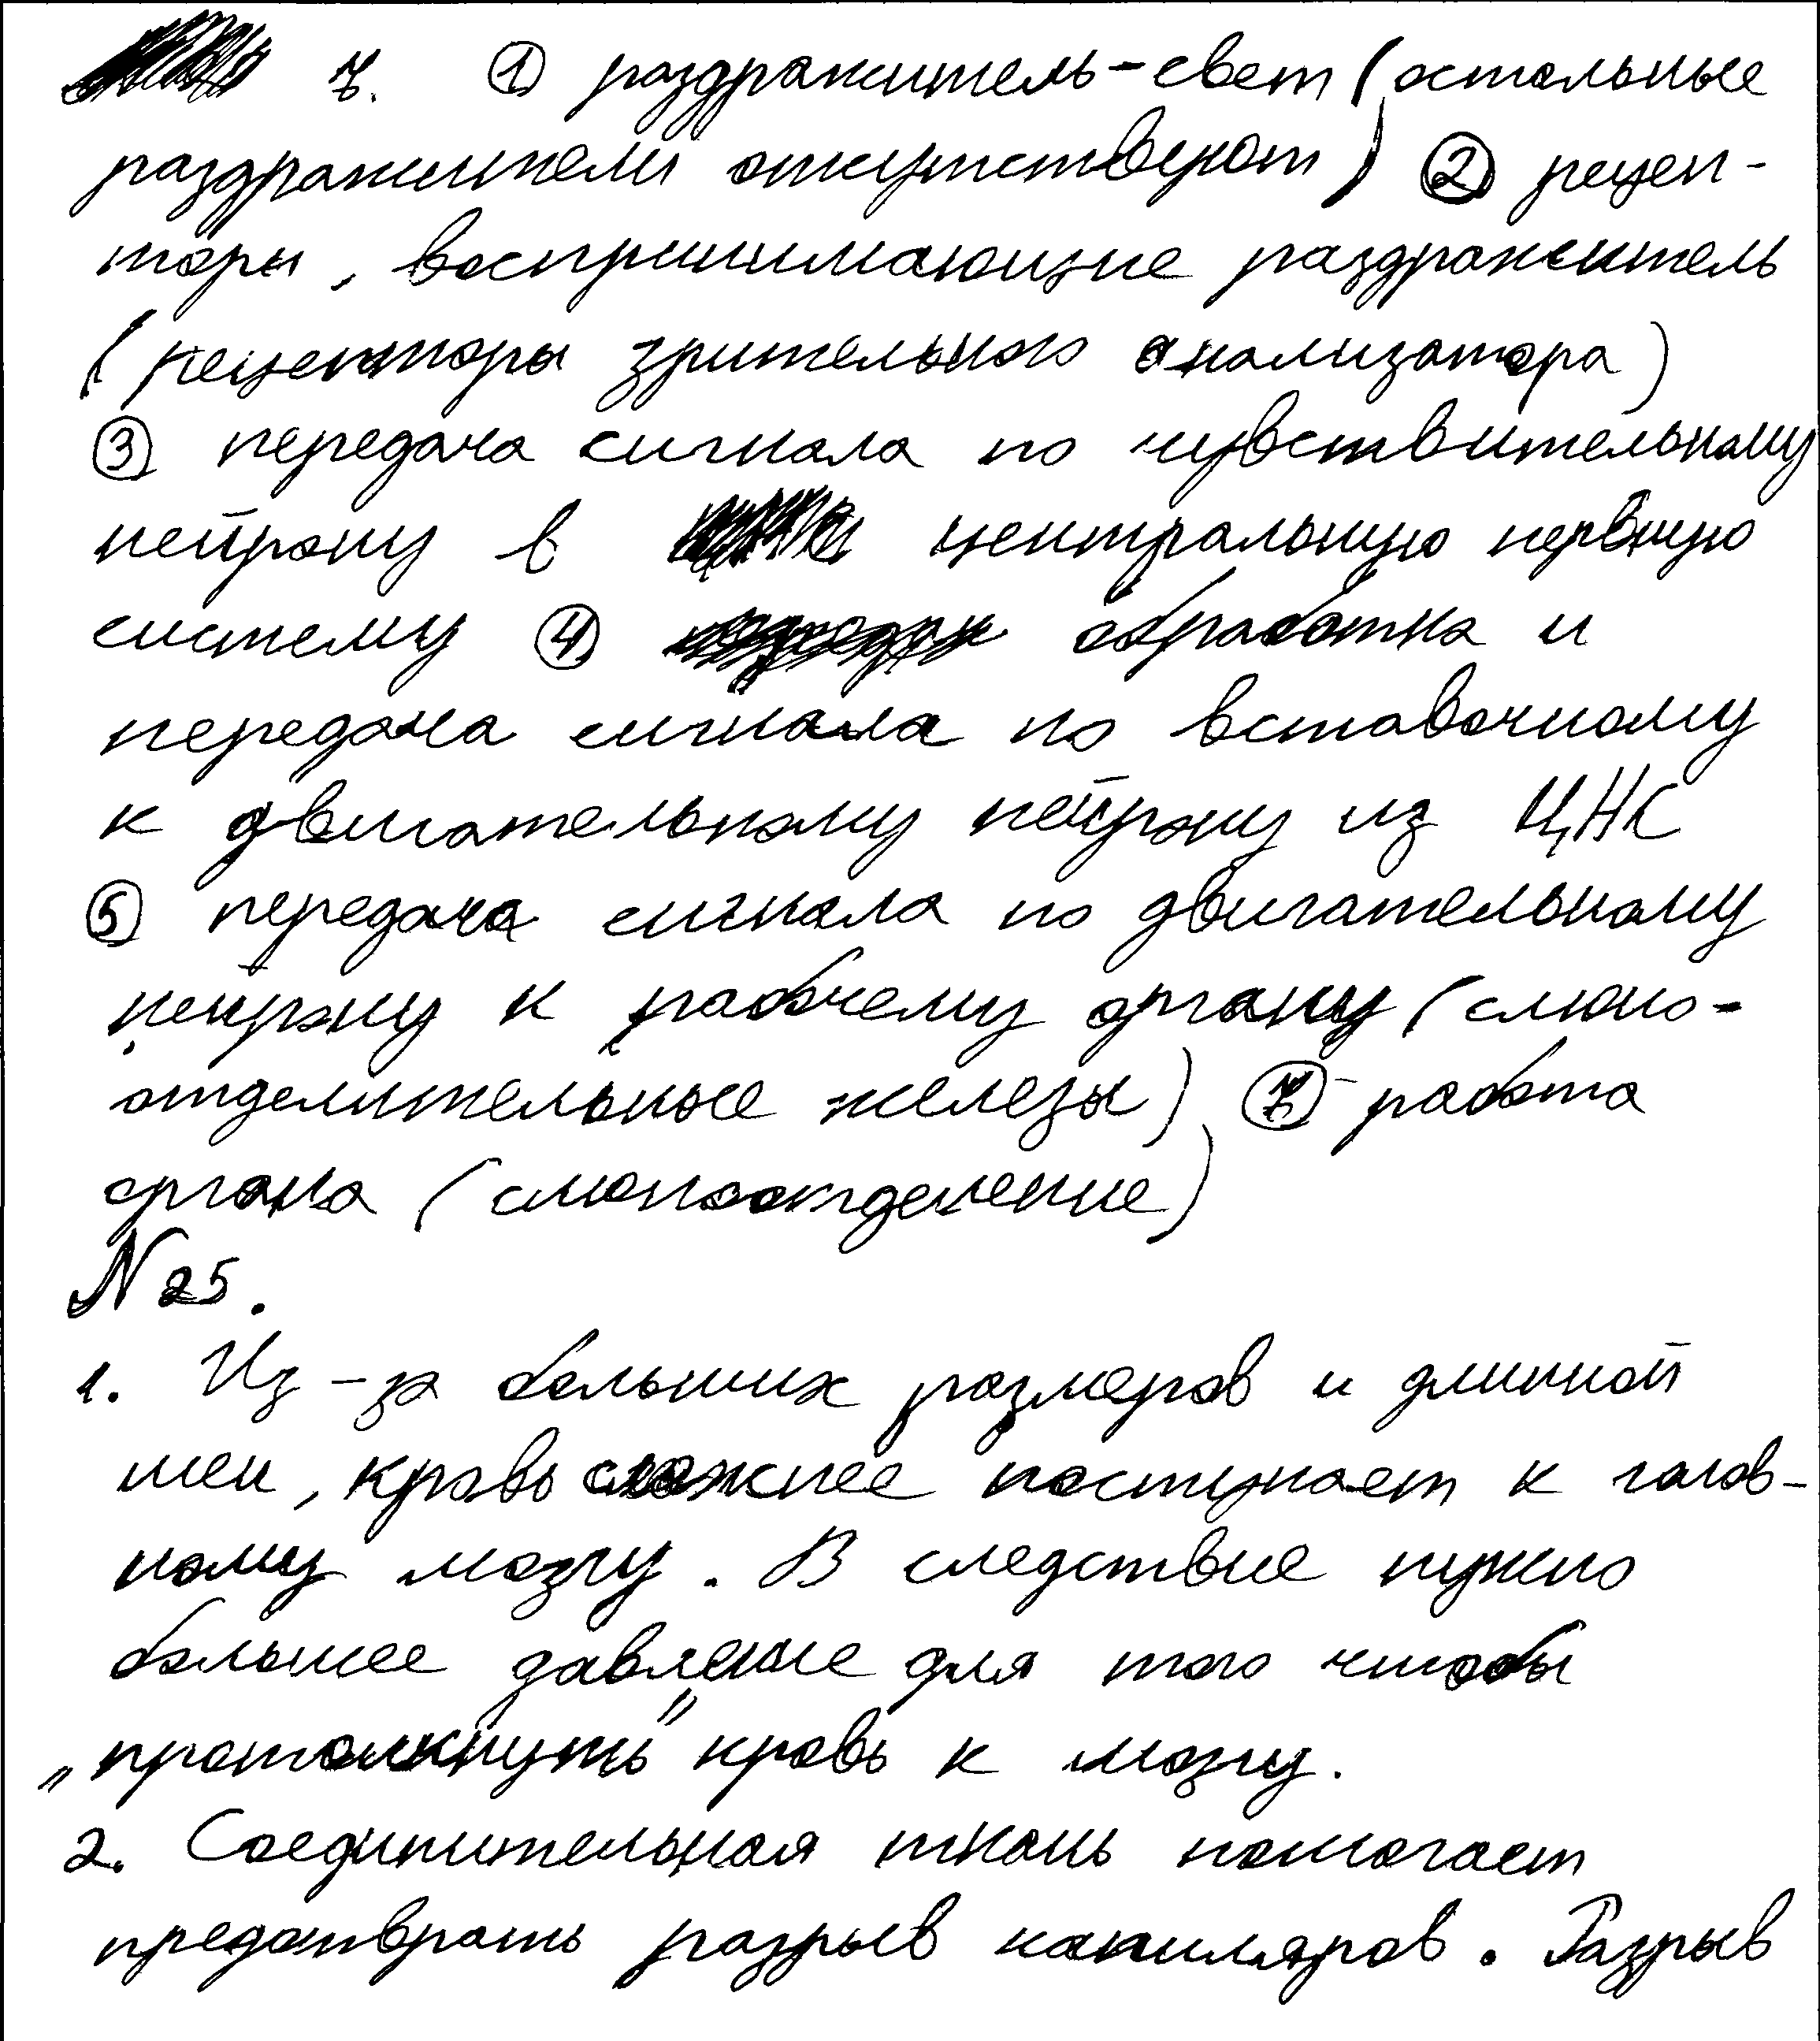 7. ① раздражитель-свет (остальные
раздражители отсутствуют) ② рецеп-
торы, воспринимающие раздражитель
(рецепторы зрительного анализатора)
③ передача сигнала по чувствительному
нейрону в центральную нервную
систему ④ обработка и
передача сигнала по вставочному
к двигательному нейрону из ЦНС
⑤ передача сигнала по двигательному
нейрону к рабочему органу (слюно-
отделительные железы) ⑦ работа
органа (слюноотделение)
N 25.
1. Из-за больших размеров и длинной
шеи, кровь сложнее поступает к голов-
ному мозгу. В следствие нужно
большее давление для того чтобы
„протолкнуть" кровь к мозгу.
2. Соединительная ткань помогает
предотврать разрыв капиляров. Разрыв